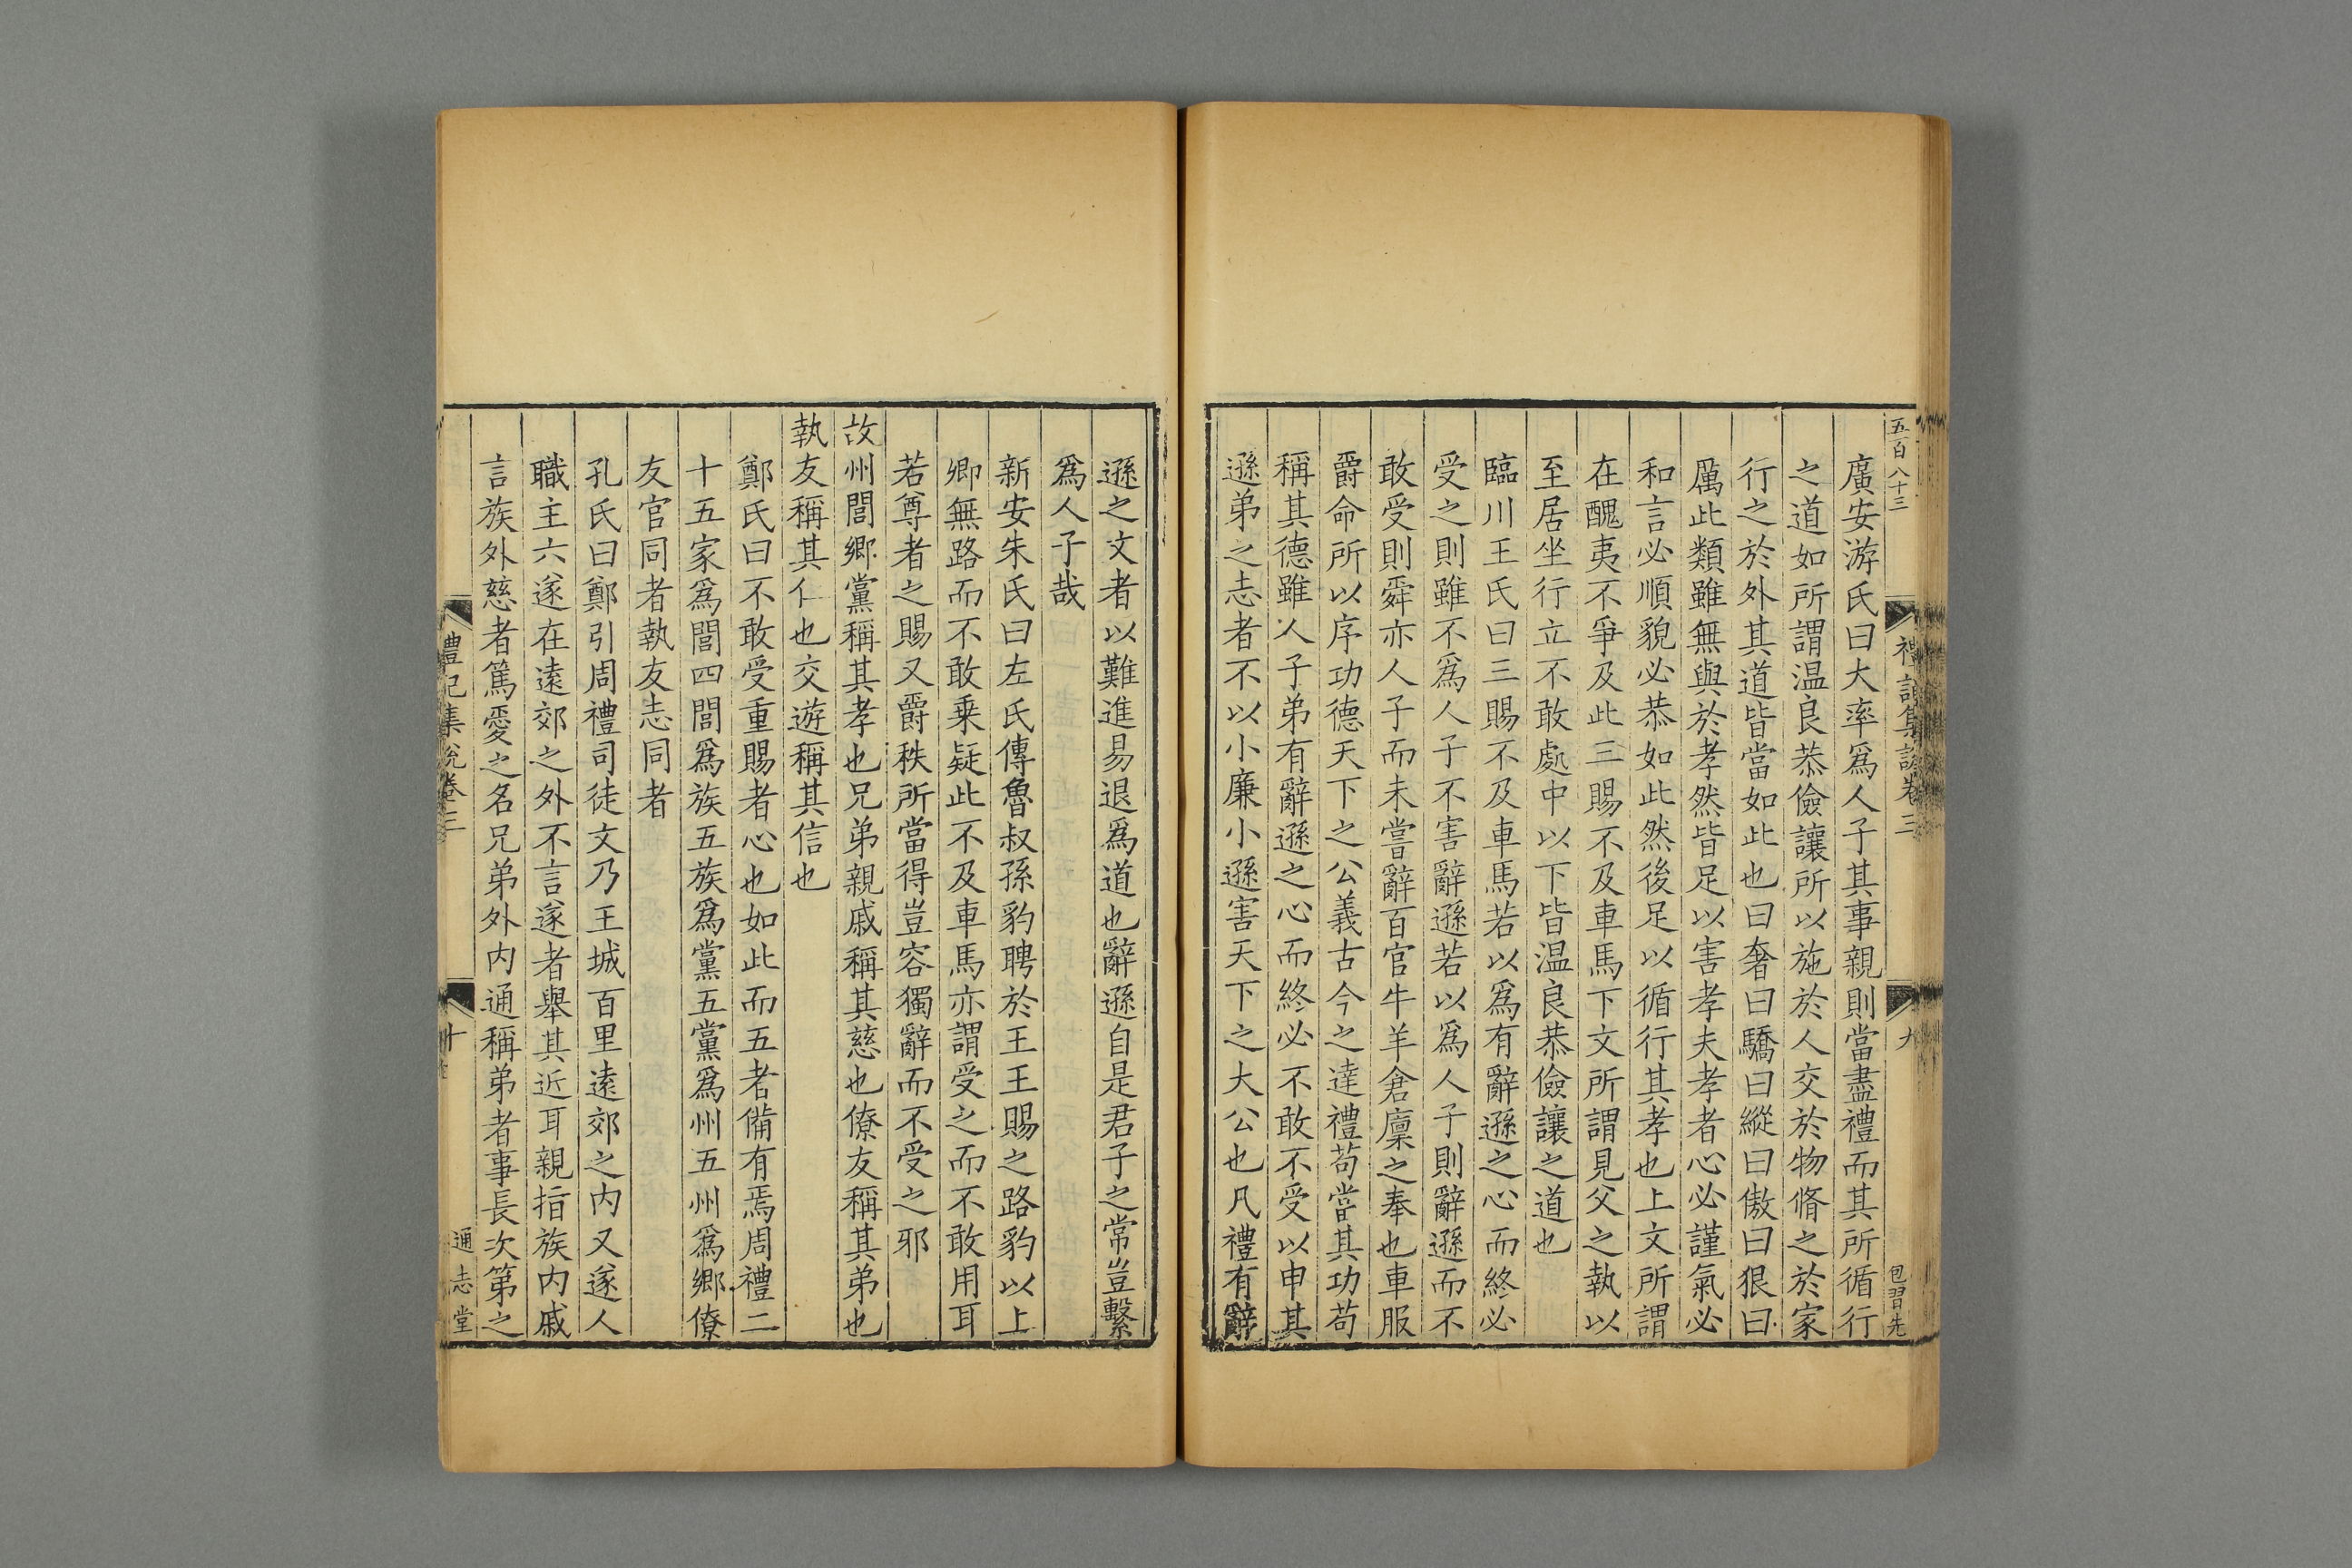 五百八十三
禮記集說卷三
九
包習先
廣安游氏曰大率爲人子其事親則當盡禮而其所循行
之道如所謂温良恭儉讓所以施於人交於物脩之於家
行之於外其道皆當如此也曰奢曰驕曰縱曰傲曰狠曰
厲此類雖無與於孝然皆足以害孝夫孝者心必謹氣必
和言必順貌必恭如此然後足以循行其孝也上文所謂
在醜夷不爭及此三賜不及車馬下文所謂見父之執以
至居坐行立不敢處中以下皆温良恭儉讓之道也
臨川王氏曰三賜不及車馬若以爲有辭遜之心而終必
受之則雖不爲人子不害辭遜若以爲人子則辭遜而不
敢受則舜亦人子而未嘗辭百官牛羊倉廩之奉也車服
爵命所以序功德天下之公義古今之達禮苟當其功苟
稱其德雖人子弟有辭遜之心而終必不敢不受以申其
遜弟之志者不以小廉小遜害天下之大公也凡禮有辭
遜之文者以難進易退爲道也辭遜自是君子之常豈繫
爲人子哉
新安朱氏曰左氏傳魯叔孫豹聘於王王賜之路豹以上
卿無路而不敢乗疑此不及車馬亦謂受之而不敢用耳
若尊者之賜又爵秩所當得豈容獨辭而不受之邪
故州閭鄉黨稱其孝也兄弟親戚稱其慈也僚友稱其弟也
執友稱其仁也交遊稱其信也
鄭氏曰不敢受重賜者心也如此而五者備有焉周禮二
十五家爲閭四閭爲族五族爲黨五黨爲州五州爲鄉僚
友官同者執友志同者
孔氏曰鄭引周禮司徒文乃王城百里遠郊之内又遂人
職主六遂在遠郊之外不言遂者舉其近耳親指族内戚
言族外慈者篤愛之名兄弟外内通稱弟者事長次第之
禮記集說卷三
十
通志堂